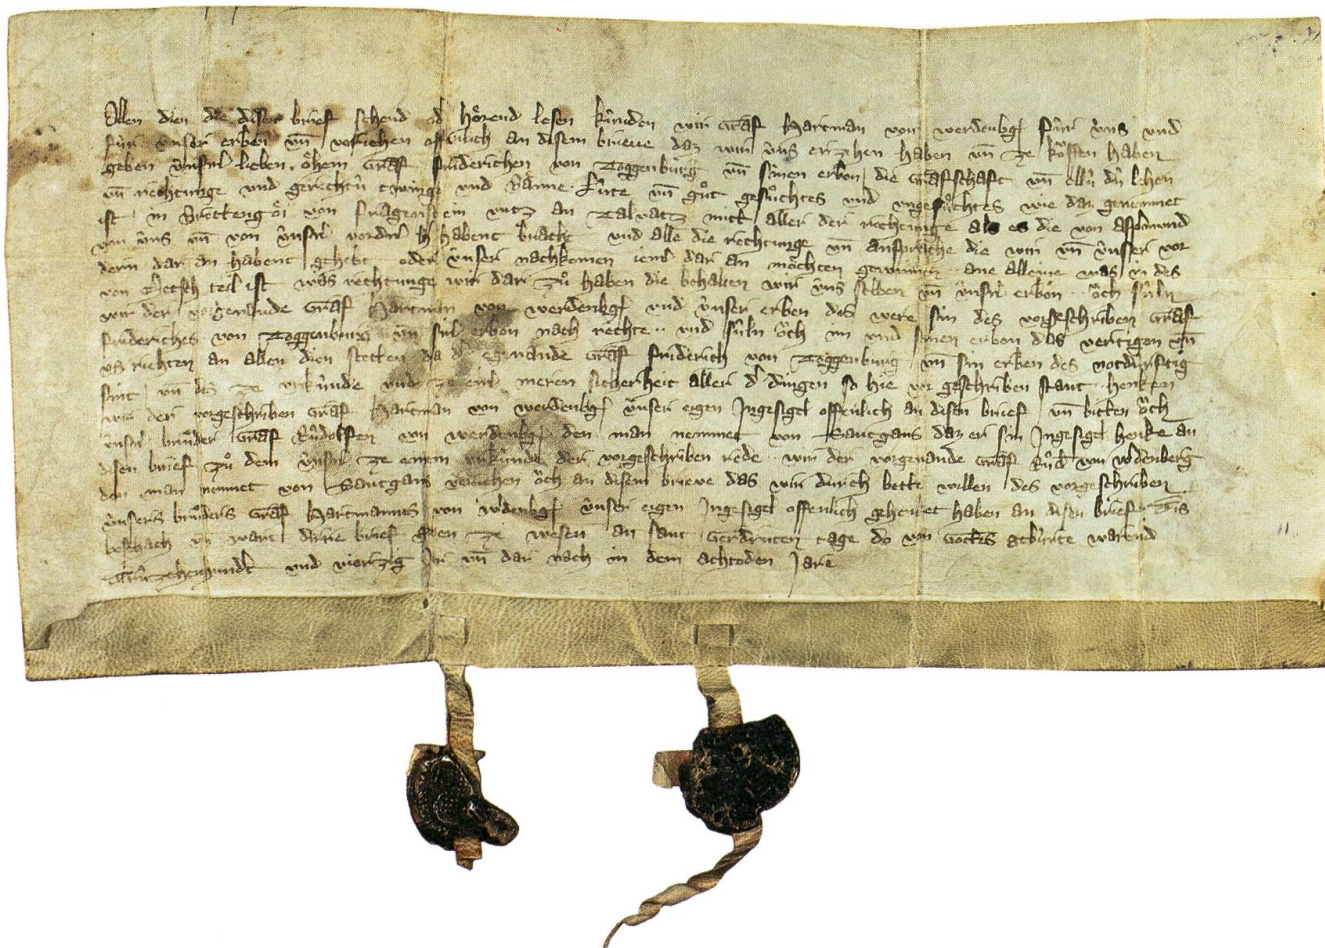 Allen dien die disen brief sehend od hoͤrend lesen kuͥnden wir Graf Hartman von werdenbg fuͥr uͥns und
fuͥr uͥnser erben vn̄ veriehen offenlich an disem brieve daz wir uͥns erzihen haben vn̄ ze koͮffen haben
geben uͥnserm lieben oͤhem Graf Friderichen von Toggenburg vn̄ sinen erben die Grafschaft vn̄ elluͥ duͥ lehen
vn̄ rechtunge und gerichtuͥ twinge und baͤnne Luͥte vn̄ guͦt gesuͦchtes und ungesuͦchtes wie daz genemmet
ist in Brettengoͤi von Fragenstein untz an Dalvatz mitt aller der rechtunge als es die von Aspermund
von uͥns vn̄ von uͥnsern vordern habent bracht und alle die rechtunge vn̄ ansprache die wir vn̄ uͥnseri vor
dern dar an habent gehebt oder uͥnser nachkomen iemer dar an moͤchten gewinnen ane alleine was in des
von Metsch teil ist was rechtunge wir dar zuͦ haben die behalten wir uͥns selben vn̄ uͥnsern erben oͮch suͥln
wir der vorgenande Graf Hartman von werdenbg und uͥnser erben des were sin des vorgeschriben Graf
Friderichs von Toggenburg vn̄ siner erben nach rechte und suͥln oͮch im und sinen erben das vertigen vn̄
us richten an allen dien stetten da d egenande Graf Friderich von Toggenburg vn̄ sin erben des notduͥrftig
sint vn̄ des ze urkuͥnde und ze einer meren sicherheit aller der dingen so hie vor geschriben stant henken
wir der vorgeschriben Graf Hartman von werdenbg uͥnser eigen Ingesigel offenlich an disen brief vn̄ bitten oͮch
uͥnsern bruͦder Graf Ruͦdolfen von werdenbg den man nemmet von Santgans daz er sin Ingesigel henke an
disen brief zuͦ dem uͥnsern ze einem urkuͥnde der vorgeschriben rede wir der vorgenande Graf Ruͦd von wdenberg
den man nemmet von Santgans veriehen oͮch an disem brieve das wir durch bette willen des vorgeschriben
uͥnsers bruͦders Graf Hartmannes von wdenbg uͥnser eigen Ingesigel offenlich gehenket haben an disen brief Dis
beschach vn̄ wart dirre brief geben ze wesen an sant Gerdruten tage do von Gottes gebuͥrte warend
druͥzehenhundert und vierzig Jar vn̄ dar nach in dem achtoden Jare